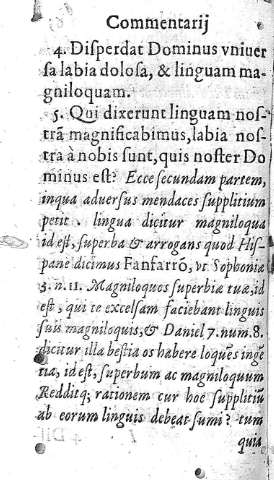 Commentarij
4. Disperdat Dominus vniuer
sa labia dolosa, & linguam ma-
gniloquam.
5. Qui dixerunt linguam nos-
trã magnificabimus, labia nos-
tra à nobis sunt, quis noster Do
minus est? Ecce secundam partem,
inqua aduersus mendaces supplitium
petit. lingua dicitur magniloqua
id est, superba & arrogans quod His-
pane dicimus Fanfarrõ, vt Sophoniæ
3. n. 11. Magniloquos superbiæ tuæ, id
est, qui te excelsam faciebant linguis
suis magniloquis, & Daniel 7. num. 8.
dicitur illa bestia os habere loquẽs inge
tia, id est, superbum ac magniloquum
Redditq; rationem cur hoc supplitiũ
ab eorum linguis debeat sumi? tum
quia